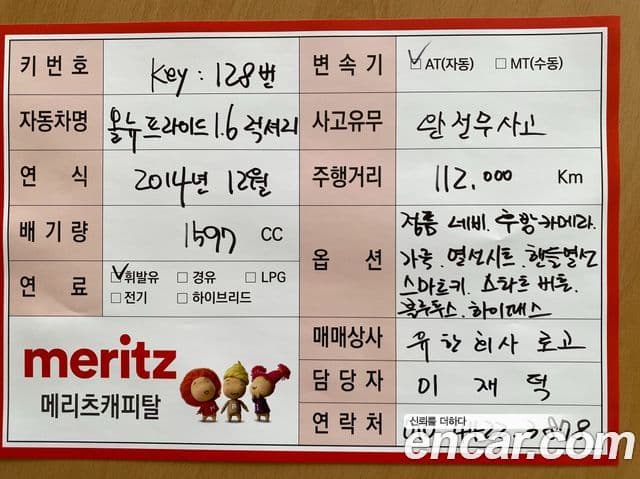 키 번 호 Key : 128번 변 속 기 AT(자동) MT(수동)
자동차명 올뉴프라이드 1.6 럭셔리 사고유무 완전무사고
연 식 2014년 12월 주행거리 112,000 Km
배 기 량 1597 CC 옵 션 정품 네비. 후방카메라.
가죽. 열선시트. 핸들열선
스마트키. 스타트 버튼.
블루투스. 하이패스
연 료 휘발유 경유 LPG
전기 하이브리드
meritz
메리츠캐피탈
매매상사 유한회사 로고
담 당 자 이 재 덕
연 락 처
신뢰를 더하다
encar.com